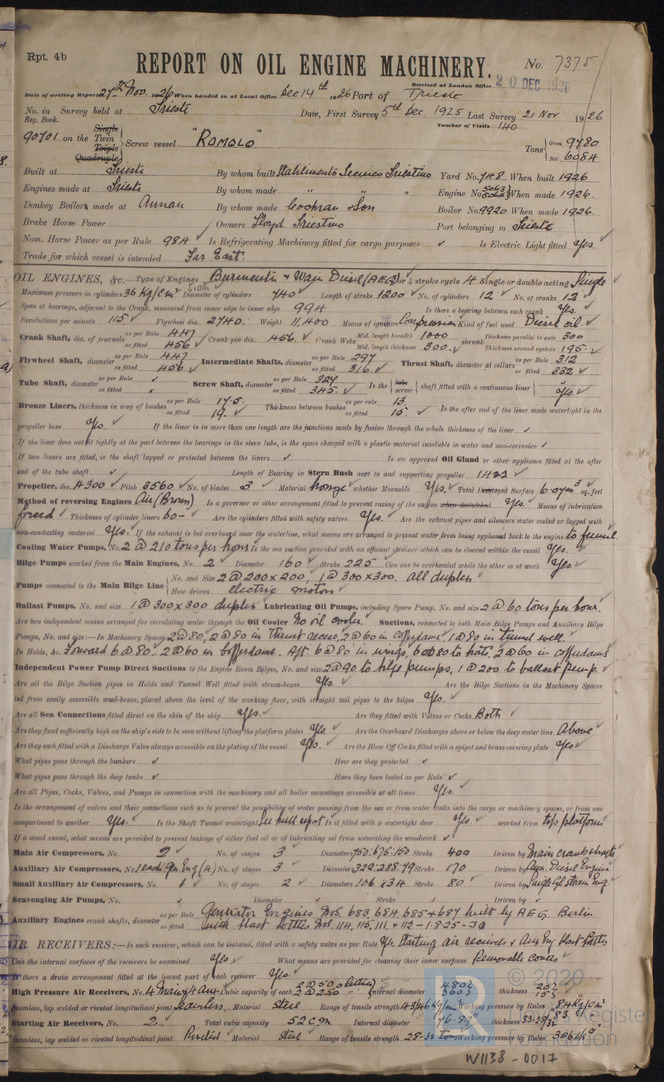 Rpt. 4b
REPORT ON OIL ENGINE MACHINERY.
No. 7375
Received at London Office
20 DEC 1926
Date of writing Report 27th Nov. 1926 When handed in at Local Office Dec 14th 1926 Port of Trieste
No. in Survey held at Trieste Date, First Survey 5th Dec. 1925 Last Survey 21 Nov 1926
Reg. Book. Number of Visits 140
90701 on the Single Twin Triple Quadruple Screw vessel "ROMOLO" Tons Gross 9780 Net 6084
Built at Trieste By whom built Stabilimento Tecnico Triestino Yard No. 748 When built 1926
Engines made at Trieste By whom made " " " Engine No. When made 1926
Donkey Boilers made at Annan By whom made Cochran & Son Boiler No. 9920 When made 1926
Brake Horse Power Owners Lloyd Triestino Port belonging to Trieste
Nom. Horse Power as per Rule 984 Is Refrigerating Machinery fitted for cargo purposes Is Electric Light fitted Yes
Trade for which vessel is intended Far East
OIL ENGINES, &c. Type of Engines Burmeister & Wain Diesel (AEG) or 4 stroke cycle 4 Single or double acting Single
Maximum pressure in cylinders 36 Kg/cm² Diameter of cylinders 740 Length of stroke 1200 No. of cylinders 12 No. of cranks 12
Span of bearings, adjacent to the Crank, measured from inner edge to inner edge 994 Is there a bearing between each crank Yes
Revolutions per minute 115 Flywheel dia. 2740 Weight 11,400 Means of ignition Compression Kind of fuel used Diesel oil.
Crank Shaft, dia. of journals as per Rule 447 as fitted 456 Crank pin dia. 456 Crank Webs Mid. length breadth 1000 Mid. length thickness 300 shrunk Thickness parallel to axis 300 Thickness around eyehole 195
Flywheel Shaft, diameter as per Rule 447 as fitted 456 Intermediate Shafts, diameter as per Rule 297 as fitted 316 Thrust Shaft, diameter at collars as per Rule 312 as fitted 332
Tube Shaft, diameter as per Rule as fitted Screw Shaft, diameter as per Rule 327 as fitted 345 Is the tube screw shaft fitted with a continuous liner Yes
Bronze Liners, thickness in way of bushes as per Rule 17.5 as fitted 19 Thickness between bushes as per rule 13 as fitted 15 Is the after end of the liner made watertight in the
propeller boss Yes If the liner is in more than one length are the junctions made by fusion through the whole thickness of the liner
If the liner does not fit tightly at the part between the bearings in the stern tube, is the space charged with a plastic material insoluble in water and non-corrosive
If two liners are fitted, is the shaft lapped or protected between the liners Is an approved Oil Gland or other appliance fitted at the after
end of the tube shaft Length of Bearing in Stern Bush next to and supporting propeller 1422
Propeller, dia. 4300 Pitch 3560 No. of blades 3 Material bronze whether Moveable Yes Total Developed Surface 6.07m² sq. feet
Method of reversing Engines Air (Brown) Is a governor or other arrangement fitted to prevent racing of the engine when declutched Yes. Means of lubrication
forced Thickness of cylinder liners 60 Are the cylinders fitted with safety valves Yes. Are the exhaust pipes and silencers water cooled or lagged with
non-conducting material Yes. If the exhaust is led overboard near the waterline, what means are arranged to prevent water from being syphoned back to the engine to funnel
Cooling Water Pumps, No. 2 @ 210 tons per hour Is the sea suction provided with an efficient strainer which can be cleared within the vessel Yes.
Bilge Pumps worked from the Main Engines, No. 2 Diameter 160 Stroke 225 Can one be overhauled while the other is at work Yes
Pumps connected to the Main Bilge Line No. and Size 2 @ 200 x 200, 1 @ 300 x 300. all duplex How driven electric motor
Ballast Pumps, No. and size 1 @ 300 x 300 duplex Lubricating Oil Pumps, including Spare Pump, No. and size 2 @ 60 tons per hour.
Are two independent means arranged for circulating water through the Oil Cooler No oil cooler. Suctions, connected to both Main Bilge Pumps and Auxiliary Bilge
Pumps, No. and size:—In Machinery Spaces 2 @ 80, 2 @ 80 in thrust recess, 2 @ 60 in cofferdams, 1 @ 80 in tunnel well.
In Holds, &c. Forward 6 @ 80, 2 @ 60 in cofferdams. Aft 6 @ 80 in wings, 2 @ 60 in cofferdams
Independent Power Pump Direct Suctions to the Engine Room Bilges, No. and size 2 @ 90 to bilge pumps, 1 @ 200 to ballast pump.
Are all the Bilge Suction pipes in Holds and Tunnel Well fitted with strum-boxes Yes. Are the Bilge Suctions in the Machinery Spaces
led from easily accessible mud-boxes, placed above the level of the working floor, with straight tail pipes to the bilges Yes.
Are all Sea Connections fitted direct on the skin of the ship Yes. Are they fitted with Valves or Cocks Both
Are they fixed sufficiently high on the ship's side to be seen without lifting the platform plates Yes Are the Overboard Discharges above or below the deep water line Above
Are they each fitted with a Discharge Valve always accessible on the plating of the vessel Yes. Are the Blow Off Cocks fitted with a spigot and brass covering plate Yes
What pipes pass through the bunkers How are they protected
What pipes pass through the deep tanks Have they been tested as per Rule
Are all Pipes, Cocks, Valves, and Pumps in connection with the machinery and all boiler mountings accessible at all times Yes.
Is the arrangement of valves and their connections such as to prevent the possibility of water passing from the sea or from water tanks into the cargo or machinery spaces, or from one
compartment to another Yes. Is the Shaft Tunnel watertight See hull report Is it fitted with a watertight door Yes worked from top platform
If a wood vessel, what means are provided to prevent leakage of either fuel oil or of lubricating oil from saturating the woodwork
Main Air Compressors, No. 2 No. of stages 3 Diameters 757.675.150 Stroke 400 Driven by Main crankshafts
Auxiliary Air Compressors, No. 1 each Gen Eng (4) No. of stages 3 Diameters 322.288.79 Stroke 170 Driven by Aux. Diesel Engine
Small Auxiliary Air Compressors, No. 1 No. of stages 2 Diameters 106 x 34 Stroke 80 Driven by Single cyl steam Eng
Scavenging Air Pumps, No. Diameter Stroke Driven by
Auxiliary Engines crank shafts, diameter as per Rule as fitted Generator Engines Nos. 683, 684, 685 & 687 built by A E G Berlin
with blast bottles Nos. 114, 115, 111 & 112 - 1.9.25 - JG
AIR RECEIVERS:—Is each receiver, which can be isolated, fitted with a safety valve as per Rule Yes Starting air receivers & Aux Eng blast bottles
Can the internal surfaces of the receivers be examined Yes What means are provided for cleaning their inner surfaces Removable covers
Is there a drain arrangement fitted at the lowest part of each receiver Yes.
High Pressure Air Receivers, No. 4 Main & 4 Aux. Cubic capacity of each Internal diameter thickness
Seamless, lap welded or riveted longitudinal joint Seamless Material Steel Range of tensile strength Working pressure by Rules 84 Kg/cm²
Starting Air Receivers, No. 2 Total cubic capacity 52 cm Internal diameter thickness
Seamless, lap welded or riveted longitudinal joint Riveted Material Steel Range of tensile strength 28-32 tons Working pressure by Rules
© 2020
Lloyd's Register
Foundation
W1138-0017